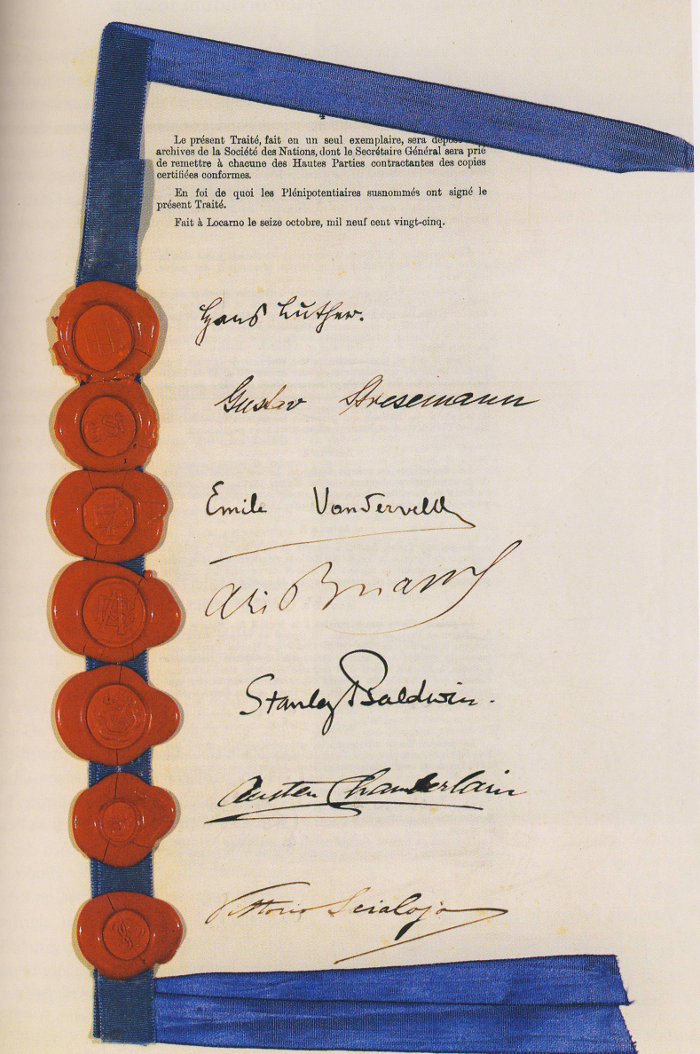 Le présent Traité, fait en un seul exemplaire, sera
archives de la Société des Nations, dont le Secrétaire Général sera prié
de remettre à chacune des Hautes Parties contractantes des copies
certifiées conformes.
En foi de quoi les Plénipotentiaires susnommés ont signé le
présent Traité.
Fait à Locarno le seize octobre, mil neuf cent vingt-cinq.
Hans Luther.
Gustav Stresemann
Emile Vandervelde
Ari Briand
Stanley Baldwin.
Austen Chamberlain
Vittorio Scialoja